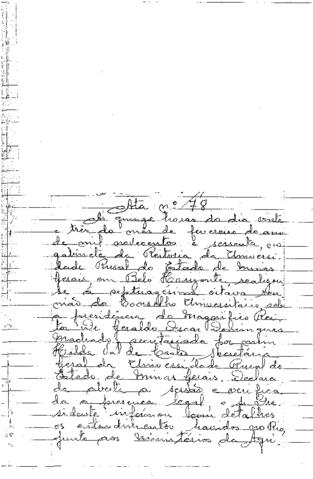 Ata nº 78
Às quinze horas do dia vinte
e três do mês de fevereiro do ano
de mil novecentos e sessenta, no
gabinete da Reitoria da Universi-
dade Rural do Estado de Minas
Gerais em Belo Horizonte, realizou-
se a septuagésima oitava reu-
nião do Conselho Universitário, sob
a presidência do Magnífico Rei-
tor Geraldo Oscar Domingues
Machado, secretariada por mim
Hilda de Castro, secretária
Geral da Universidade Rural do
Estado de Minas Gerais. Declara-
da aberta a sessão e verifica-
da a presença legal, o Sr. Pre-
sidente informou com detalhes
os entendimentos havidos no Rio,
junto aos Ministérios da Agri-